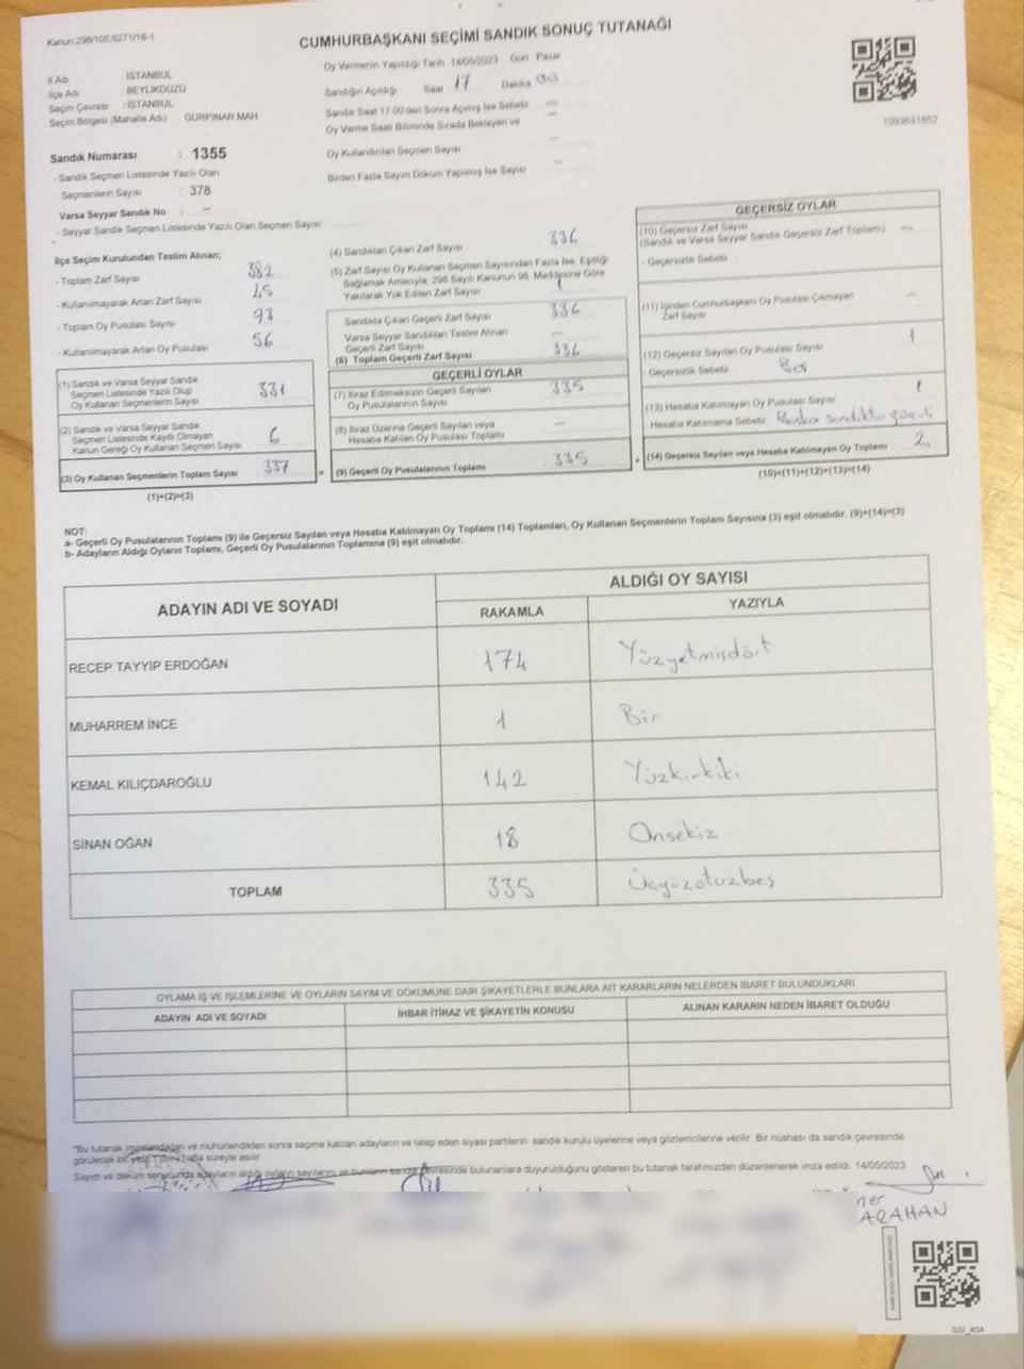 Kanun:298/105,6271/16-1
CUMHURBAŞKANI SEÇİMİ SANDIK SONUÇ TUTANAĞI
İl Adı : İSTANBUL
İlçe Adı : BEYLİKDÜZÜ
Seçim Çevresi : İSTANBUL
Seçim Bölgesi (Mahalle Adı) GÜRPINAR MAH
Oy Vermenin Yapıldığı Tarih :14/05/2023 Gün : Pazar
Sandığın Açıldığı Saat 17 Dakika
Sandık Saat 17:00'den Sonra Açılmış İse Sebebi
Oy Verme Saati Bitiminde Sırada Bekleyen ve
Oy Kullandırılan Seçmen Sayısı
Birden Fazla Sayım Döküm Yapılmış İse Sayısı
Sandık Numarası : 1355
- Sandık Seçmen Listesinde Yazılı Olan
Seçmenlerin Sayısı : 378
Varsa Seyyar Sandık No : –
- Seyyar Sandık Seçmen Listesinde Yazılı Olan Seçmen Sayısı
İlçe Seçim Kurulundan Teslim Alınan;
- Toplam Zarf Sayısı 382
- Kullanılmayarak Artan Zarf Sayısı 45
- Toplam Oy Pusulası Sayısı
- Kullanılmayarak Artan Oy Pusulası 56
(1) Sandık ve Varsa Seyyar Sandık
Seçmen Listesinde Yazılı Olup
Oy Kullanan Seçmenlerin Sayısı 331
(2) Sandık ve Varsa Seyyar Sandık
Seçmen Listesinde Kayıtlı Olmayan
Kanun Gereği Oy Kullanan Seçmen Sayısı 6
(3) Oy Kullanan Seçmenlerin Toplam Sayısı 337
(1)+(2)=(3)
(4) Sandıktan Çıkan Zarf Sayısı 336
(5) Zarf Sayısı Oy Kullanan Seçmen Sayısından Fazla İse, Eşitliği
Sağlamak Amacıyla, 298 Sayılı Kanunun 98. Maddesine Göre
Yakılarak Yok Edilen Zarf Sayısı
Sandıkta Çıkan Geçerli Zarf Sayısı 336
Varsa Seyyar Sandıktan Teslim Alınan
Geçerli Zarf Sayısı –
(6) Toplam Geçerli Zarf Sayısı 336
GEÇERLİ OYLAR
(7) İtiraz Edilmeksizin Geçerli Sayılan
Oy Pusulalarının Sayısı 335
(8) İtiraz Üzerine Geçerli Sayılan veya
Hesaba Katılan Oy Pusulası Toplamı –
(9) Geçerli Oy Pusulalarının Toplamı 335
GEÇERSİZ OYLAR
(10) Geçersiz Zarf Sayısı
(Sandık ve Varsa Seyyar Sandık Geçersiz Zarf Toplamı) –
- Geçersizlik Sebebi
(11) İçinden Cumhurbaşkanı Oy Pusulası Çıkmayan
Zarf Sayısı –
(12) Geçersiz Sayılan Oy Pusulası Sayısı 1
- Geçersizlik Sebebi
(13) Hesaba Katılmayan Oy Pusulası Sayısı 1
Hesaba Katılmama Sebebi
(14) Geçersiz Sayılan veya Hesaba Katılmayan Oy Toplamı 2
(10)+(11)+(12)+(13)=(14)
NOT:
a- Geçerli Oy Pusulalarının Toplamı (9) ile Geçersiz Sayılan veya Hesaba Katılmayan Oy Toplamı (14) Toplamları, Oy Kullanan Seçmenlerin Toplam Sayısına (3) eşit olmalıdır. (9)+(14)=(3)
b- Adayların Aldığı Oyların Toplamı, Geçerli Oy Pusulalarının Toplamına (9) eşit olmalıdır.
ADAYIN ADI VE SOYADI
ALDIĞI OY SAYISI
RAKAMLA YAZIYLA
RECEP TAYYİP ERDOĞAN 174 Yüzyetmişdört
MUHARREM İNCE 1 Bir
KEMAL KILIÇDAROĞLU 142 Yüzkırkiki
SİNAN OĞAN 18 Onsekiz
TOPLAM 335 Üçyüzotuzbeş
OYLAMA İŞ VE İŞLEMLERİNE VE OYLARIN SAYIM VE DÖKÜMÜNE DAİR ŞİKAYETLERLE BUNLARA AİT KARARLARIN NELERDEN İBARET BULUNDUKLARI
ADAYIN ADI VE SOYADI
İHBAR İTİRAZ VE ŞİKAYETİN KONUSU
ALINAN KARARIN NEDEN İBARET OLDUĞU
*Bu tutanak imzalandıktan ve mühürlendikten sonra seçime katılan adayların ve talep eden siyasi partilerin sandık kurulu üyelerine veya gözlemcilerine verilir. Bir nüshası da sandık çevresinde
görülecek bir yere 1 (bir) hafta süreyle asılır.
Sayım ve döküm sonucunda adayların aldığı oyların sayılarını ve bunların sandık çevresinde bulunanlara duyurulduğunu gösteren bu tutanak tarafımızdan düzenlenerek imza edildi. 14/05/2023